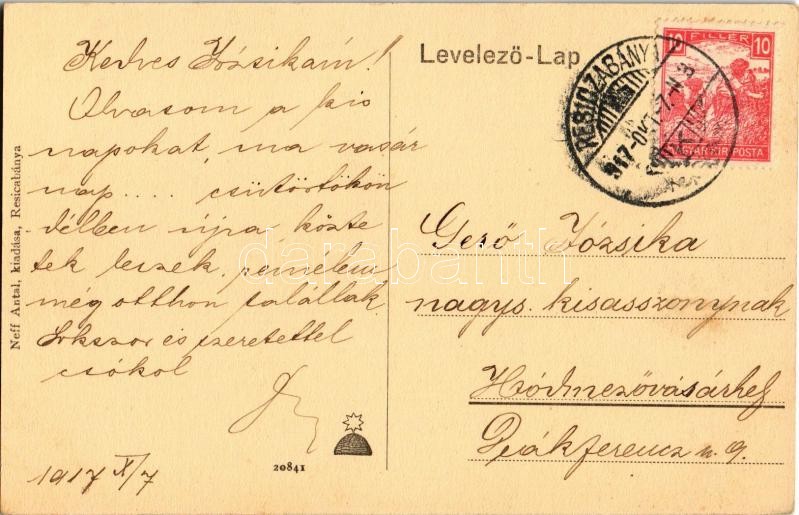 Kedves Józsikám!
Olvasom a kis
napokat, ma vasár
nap.... csütörtökön
délben újra közte
tek leszek, remélem
még otthon talállak
Sokszor és szeretettel
csókol
1917 X/7
20841
Neff Antal, kiadása, Resicabánya
Levelező-Lap
RESICZABÁNYA
917-OKT-7
10 FILLÉR 10
MAGYAR KIR. POSTA
Gerő Józsika
nagys. kisasszonynak
Hódmezővásárhely
Deák ferencz u. 9.
darabanth